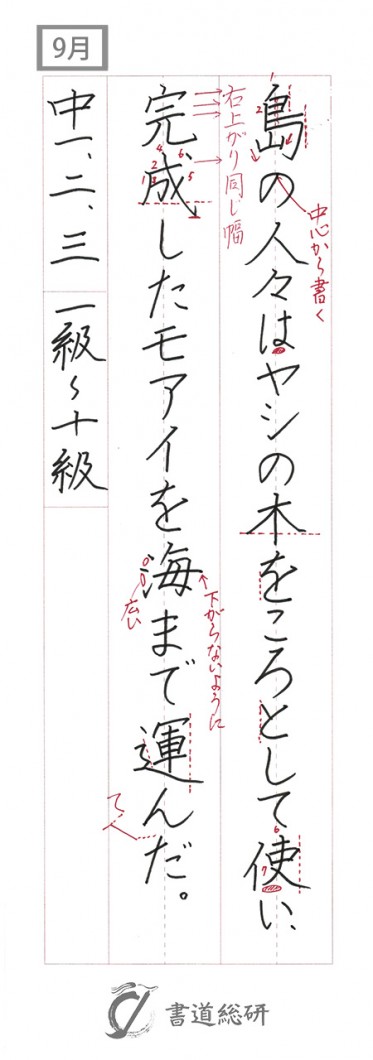 9月
島の人々はヤシの木をころとして使い、
完成したモアイを海まで運んだ。
中一、二、三 一級〜十級
中心から書く
右上がり同じ幅
下がらないように
広い
て人
1
2
1
2
3
4
5
6
6
7
書道総研